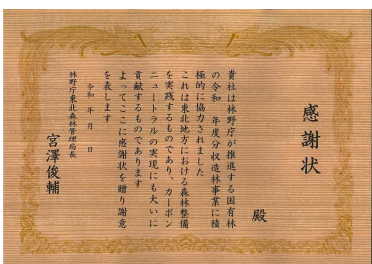 感謝状
殿
貴社は林野庁が推進する国有林
の令和　年度分収造林事業に積
極的に協力されました
これは東北地方における森林整備
を実践するものであり、カーボン
ニュートラルの実現にも大いに
貢献するものであります
よってここに感謝状を贈り謝意
を表します
令和　年　月　日
林野庁東北森林管理局長
宮澤俊輔